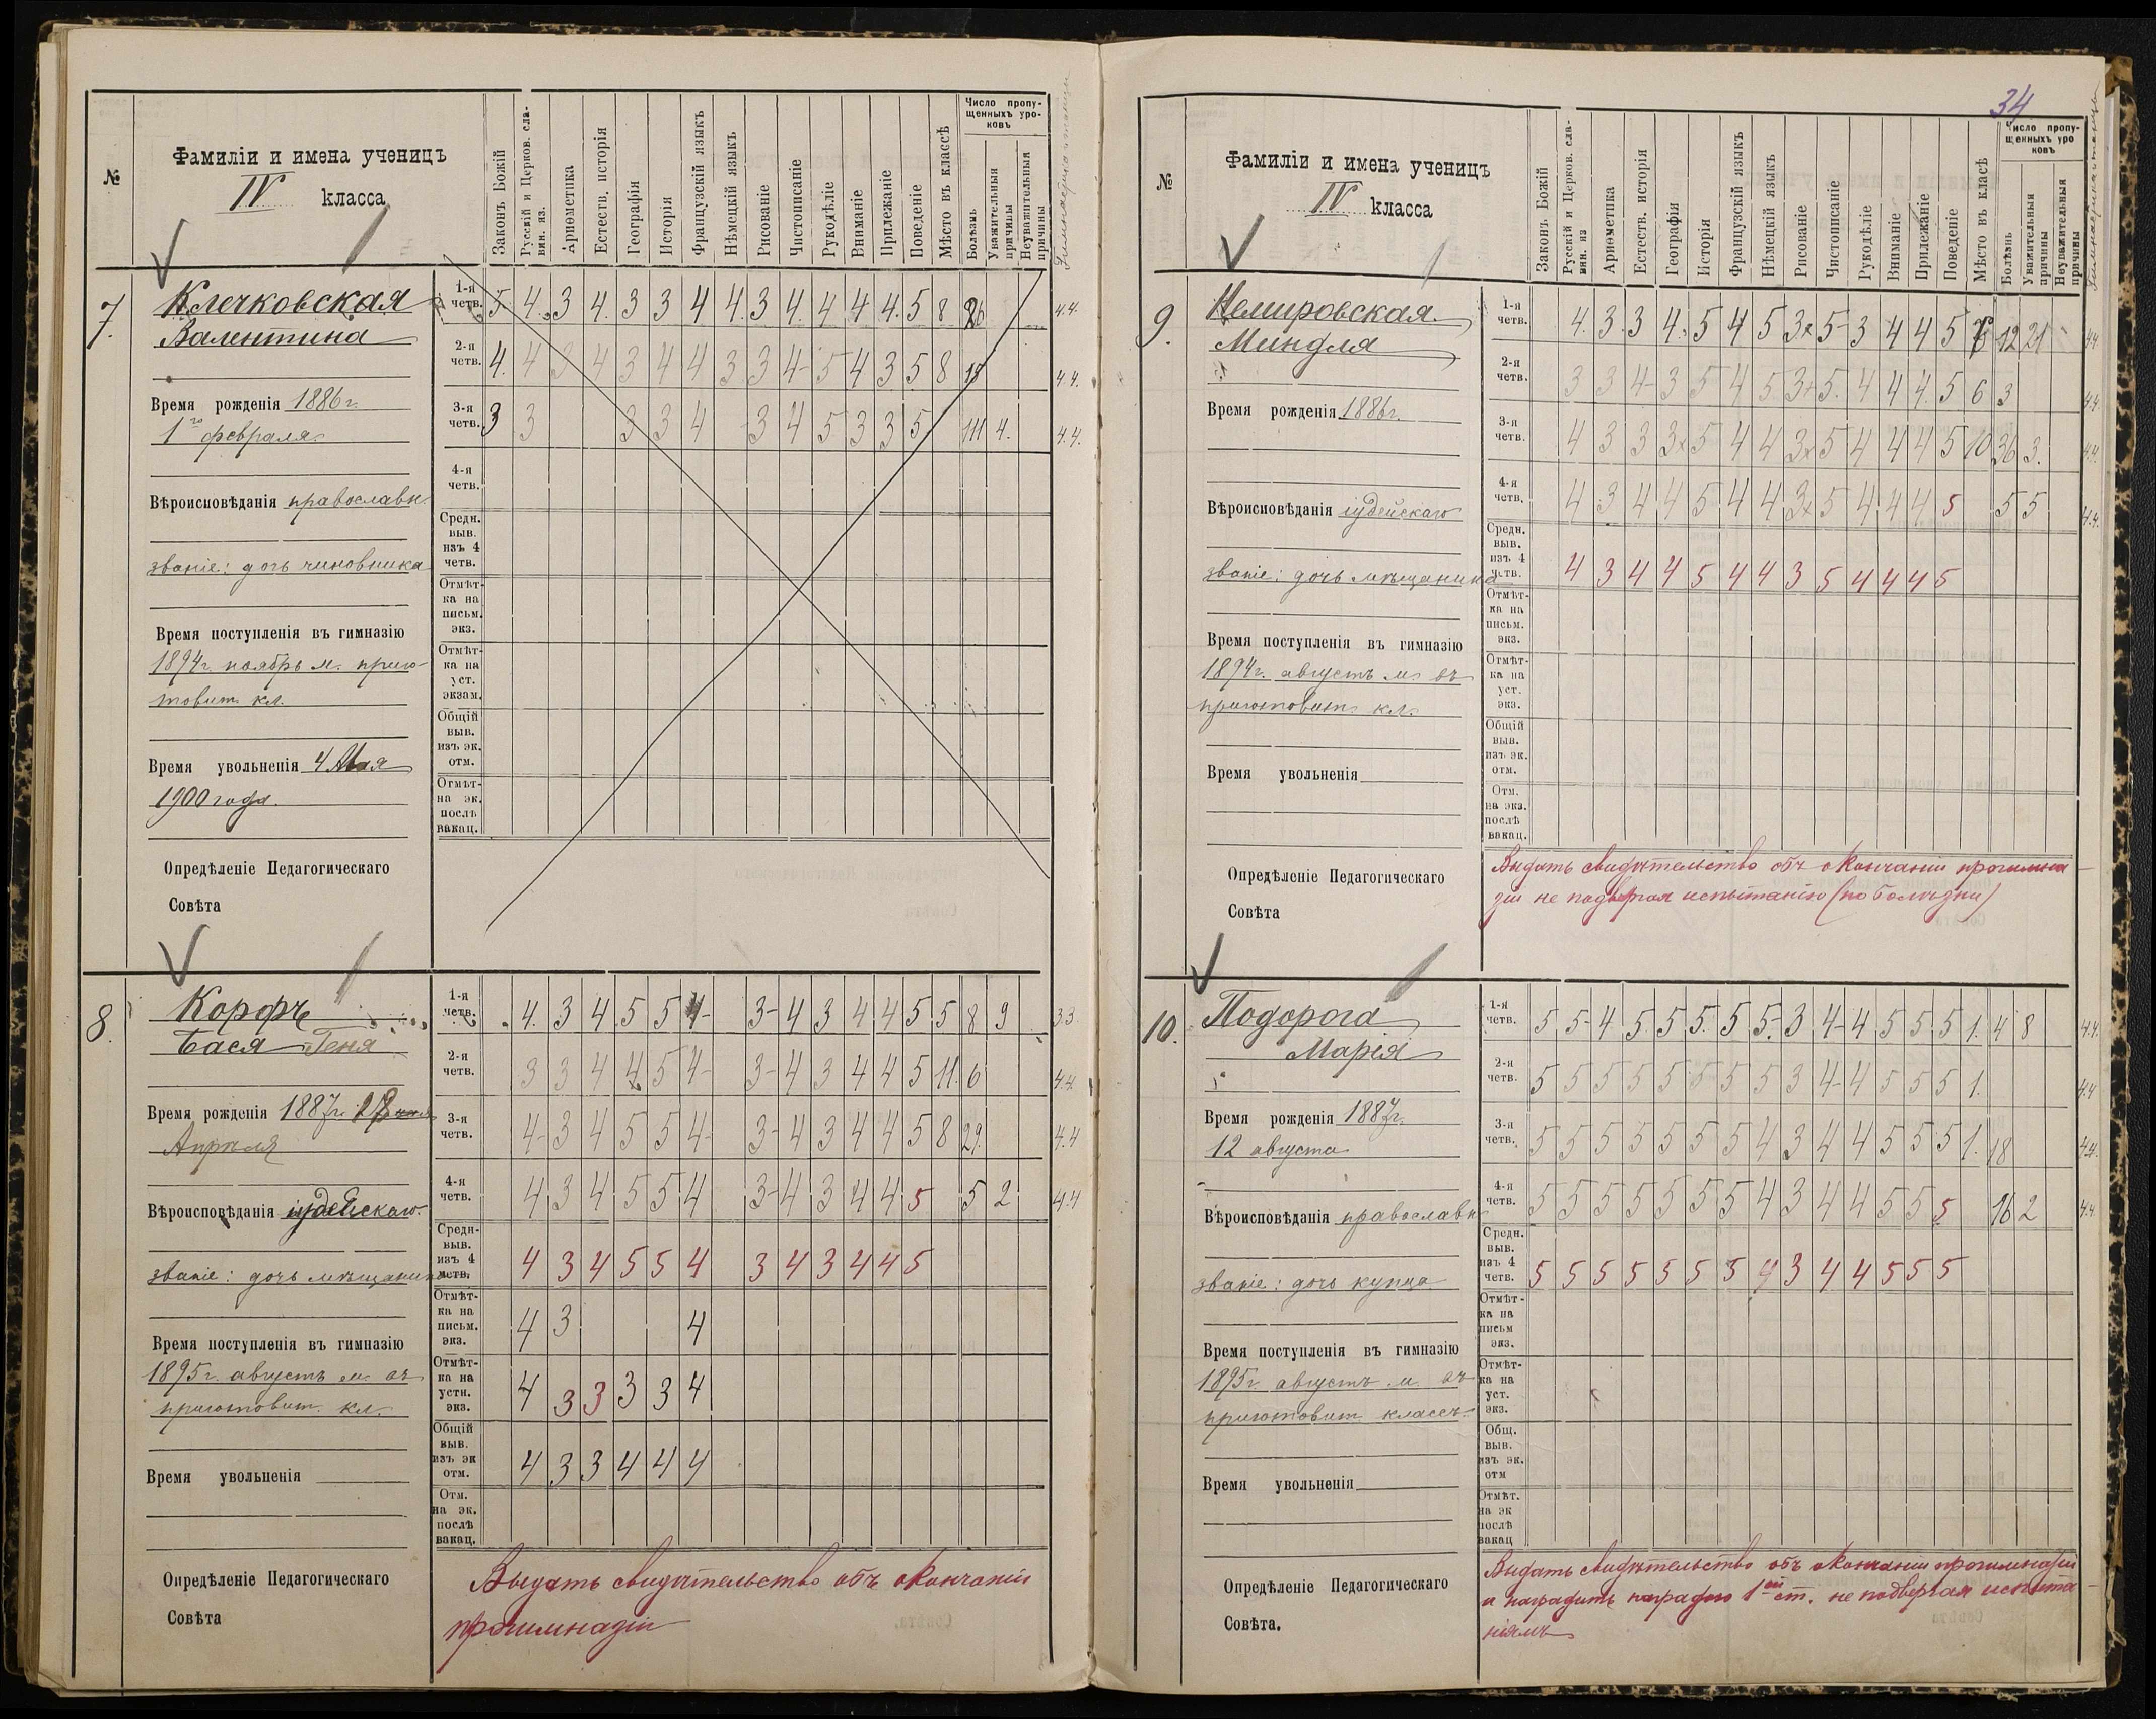 34
№
Фамиліи и имена ученицъ
IV класса
Законъ Божій
Русскій и Церков. сла-
вян. яз.
Ариѳметика
Естеств. исторія
Географія
Исторія
Французскій языкъ
Нѣмецкій языкъ
Рисованіе
Чистописаніе
Рукодѣліе
Вниманіе
Прилежаніе
Поведеніе
Мѣсто въ классѣ
Число пропу-
щенныхъ уро-
ковъ
Болѣзнь
Уважительныя
причины
Неуважительныя
причины
7.
Клечковская
Валентина
Время рожденія 1886 г.
1го февраля.
Вѣроисповѣданія православн.
званіе: дочь чиновника
Время поступленія въ гимназію
1894г. ноябрь м. приго-
товит. кл.
Время увольненія 4 Мая
1900 года.
Опредѣленіе Педагогическаго
Совѣта
1-я
четв. 5 4 3 4 3 3 4 4 3 4 4 4 4 5 8 26 4.4.
2-я
четв. 4 4 3 4 3 4 4 3 3 4- 5 4 3 5 8 18 4.4.
3-я
четв. 3 3 3 3 4 3 4 5 3 3 5 111 4. 4.4.
4-я
четв.
Средн.
выв.
изъ 4
четв.
Отмѣт-
ка на
письм.
экз.
Отмѣт-
ка на
уст.
экзам.
Общій
выв.
изъ эк.
отм.
Отмѣт-
на эк.
послѣ
вакац.
8.
Корфъ
Бася Геня
Время рожденія 1887г. 18
Апрѣля
Вѣроисповѣданія іудейскаго.
званіе: дочь мѣщанина
Время поступленія въ гимназію
1895г. августъ м. въ
приготовит. кл.
Время увольненія
Опредѣленіе Педагогическаго
Совѣта
1-я
четв. 4 3 4 5 5 4- 3- 4 3 4 4 5 5 8 9 3.3
2-я
четв. 3 3 4 4 5 4- 3- 4 3 4 4 5 11. 6 4.4.
3-я
четв. 4- 3 4 5 5 4- 3- 4 3 4 4 5 8 29. 4.4
4-я
четв. 4 3 4 5 5 4 3- 4 3 4 4 5 5 2 4.4
Средн-
выв.
изъ 4
четв. 4 3 4 5 5 4 3 4 3 4 4 5
Отмѣт-
ка на
письм.
экз. 4 3 4
Отмѣт-
ка на
устн.
экз. 4 3 3 3 3 4
Общій
выв.
изъ эк
отм. 4 3 3 4 4 4
Отм.
на эк.
послѣ
вакац.
Выдать свидѣтельство объ окончаніи
прогимназіи
№
Фамиліи и имена ученицъ
IV класса
Законъ Божій
Русскій и Церков. сла-
вян. яз
Ариѳметика
Естеств. исторія
Географія
Исторія
Французскій языкъ
Нѣмецкій языкъ
Рисованіе
Чистописаніе
Рукодѣліе
Вниманіе
Прилежаніе
Поведеніе
Мѣсто въ класѣ
Число пропу-
щенныхъ уро
ковъ
Болѣзнь
Уважительныя
причины
Неуважительныя
причины
9.
Немировская
Миндля
Время рожденія 1886г.
Вѣроисповѣданія іудейскаго
званіе: дочь мѣщанина
Время поступленія въ гимназію
1894г. августъ м. въ
приготовит. кл.
Время увольненія
Опредѣленіе Педагогическаго
Совѣта
1-я
четв. 4. 3. 3 4. 5 4 5 3х 5- 3 4 4 5 12 21 4.4
2-я
четв. 3 3 4- 3 5 4 5 3+ 5. 4 4 4. 5 6 3 4.4.
3-я
четв. 4 3 3 3х 5 4 4 3х 5 4 4 4 5 10 36 3. 4.4.
4-я
четв. 4 3 4 4 5 4 4 3х 5 4 4 4 5 5 5 4.4.
Средн.
выв.
изъ 4
четв. 4 3 4 4 5 4 4 3 5 4 4 4 5
Отмѣт-
ка на
письм.
экз.
Отмѣт-
ка на
уст.
экз.
Общій
выв.
изъ эк.
отм.
Отм.
на экз.
послѣ
вакац.
Выдать свидѣтельство объ окончаніи прогимна-
зіи не подвергая испытанію (по болѣзни)
10.
Подорога
Марія
Время рожденія 1887г.
12 августа
Вѣроисповѣданія православн
званіе: дочь купца
Время поступленія въ гимназію
1895г. августъ м. въ
приготовит. классъ.
Время увольненія
Опредѣленіе Педагогическаго
Совѣта.
1-я
четв. 5 5- 4 5 5 5. 5 5- 3 4- 4 5 5 5 1. 4 8 4.4.
2-я
четв. 5 5 5 5 5 5 5 5 3 4- 4 5 5 5 1. 4.4
3-я
четв. 5 5 5 5 5 5 5 4 3 4 4 5 5 5 1. 18 4.4.
4-я
четв. 5 5 5 5 5 5 5 4 3 4 4 5 5 5 16 2 4.4.
Средн.
выв.
изъ 4
четв. 5 5 5 5 5 5 5 4 3 4 4 5 5 5
Отмѣт-
ка на
письм
экз.
Отмѣт-
ка на
уст.
экз.
Общ.
выв.
изъ эк.
отм
Отмѣт.
на эк
послѣ
вакац
Выдать свидѣтельство объ окончаніи прогимназіи
и наградить наградою 1ой ст. не подвергая испыта-
ніямъ